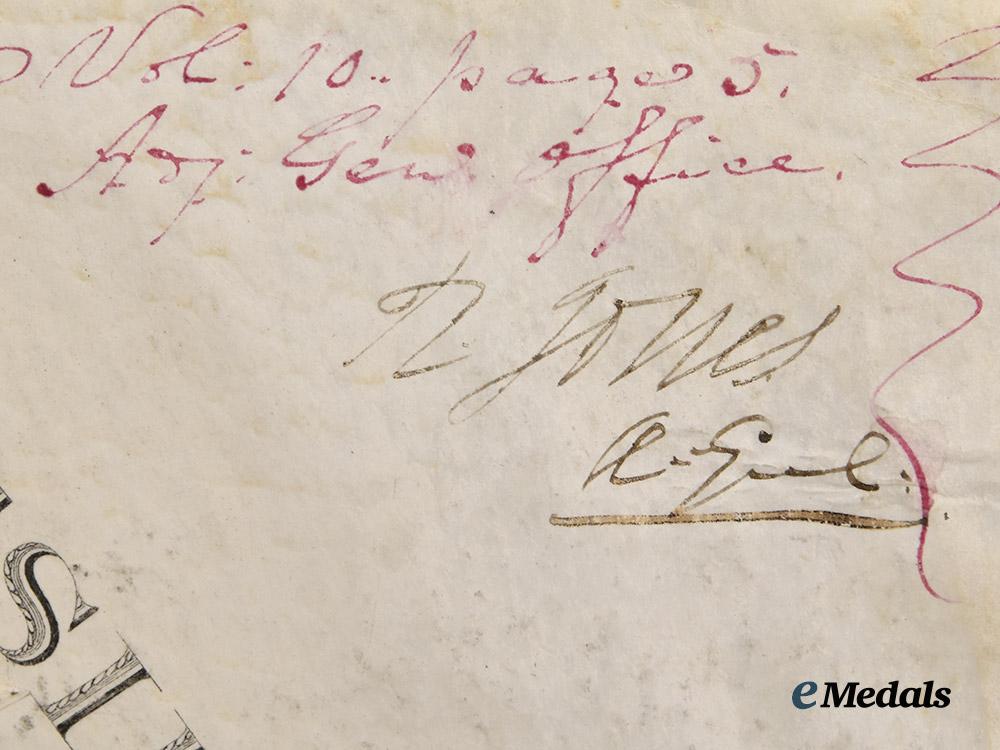 Vol: 10.. page 5.
Adj: Genl office.
R Jones
A. Genl.
SI
eMedals